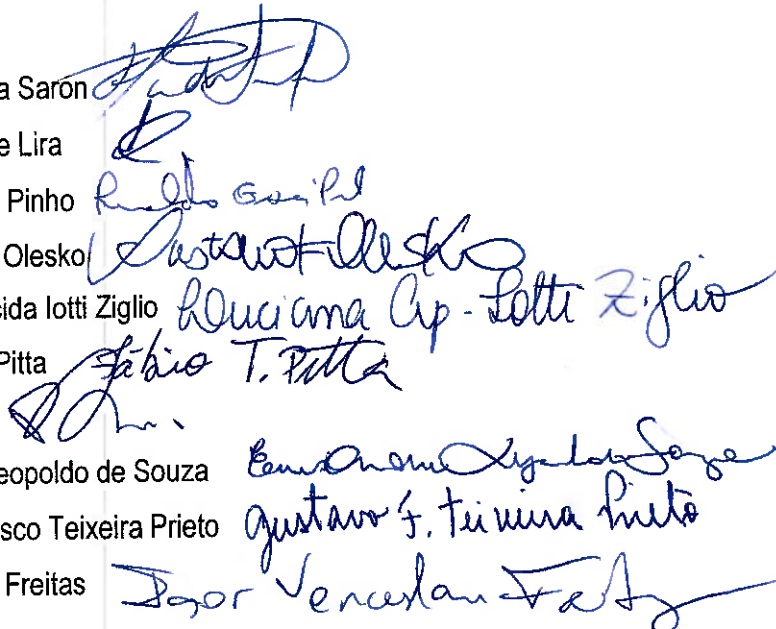 a Saron
e Lira
Pinho
Olesko Gustavo F. Olesko
ida Iotti Ziglio Luciana Ap. Iotti Ziglio
Pitta Fábio T. Pitta
eopoldo de Souza
sco Teixeira Prieto Gustavo F. Teixeira Prieto
Freitas Igor Venceslau Freitas